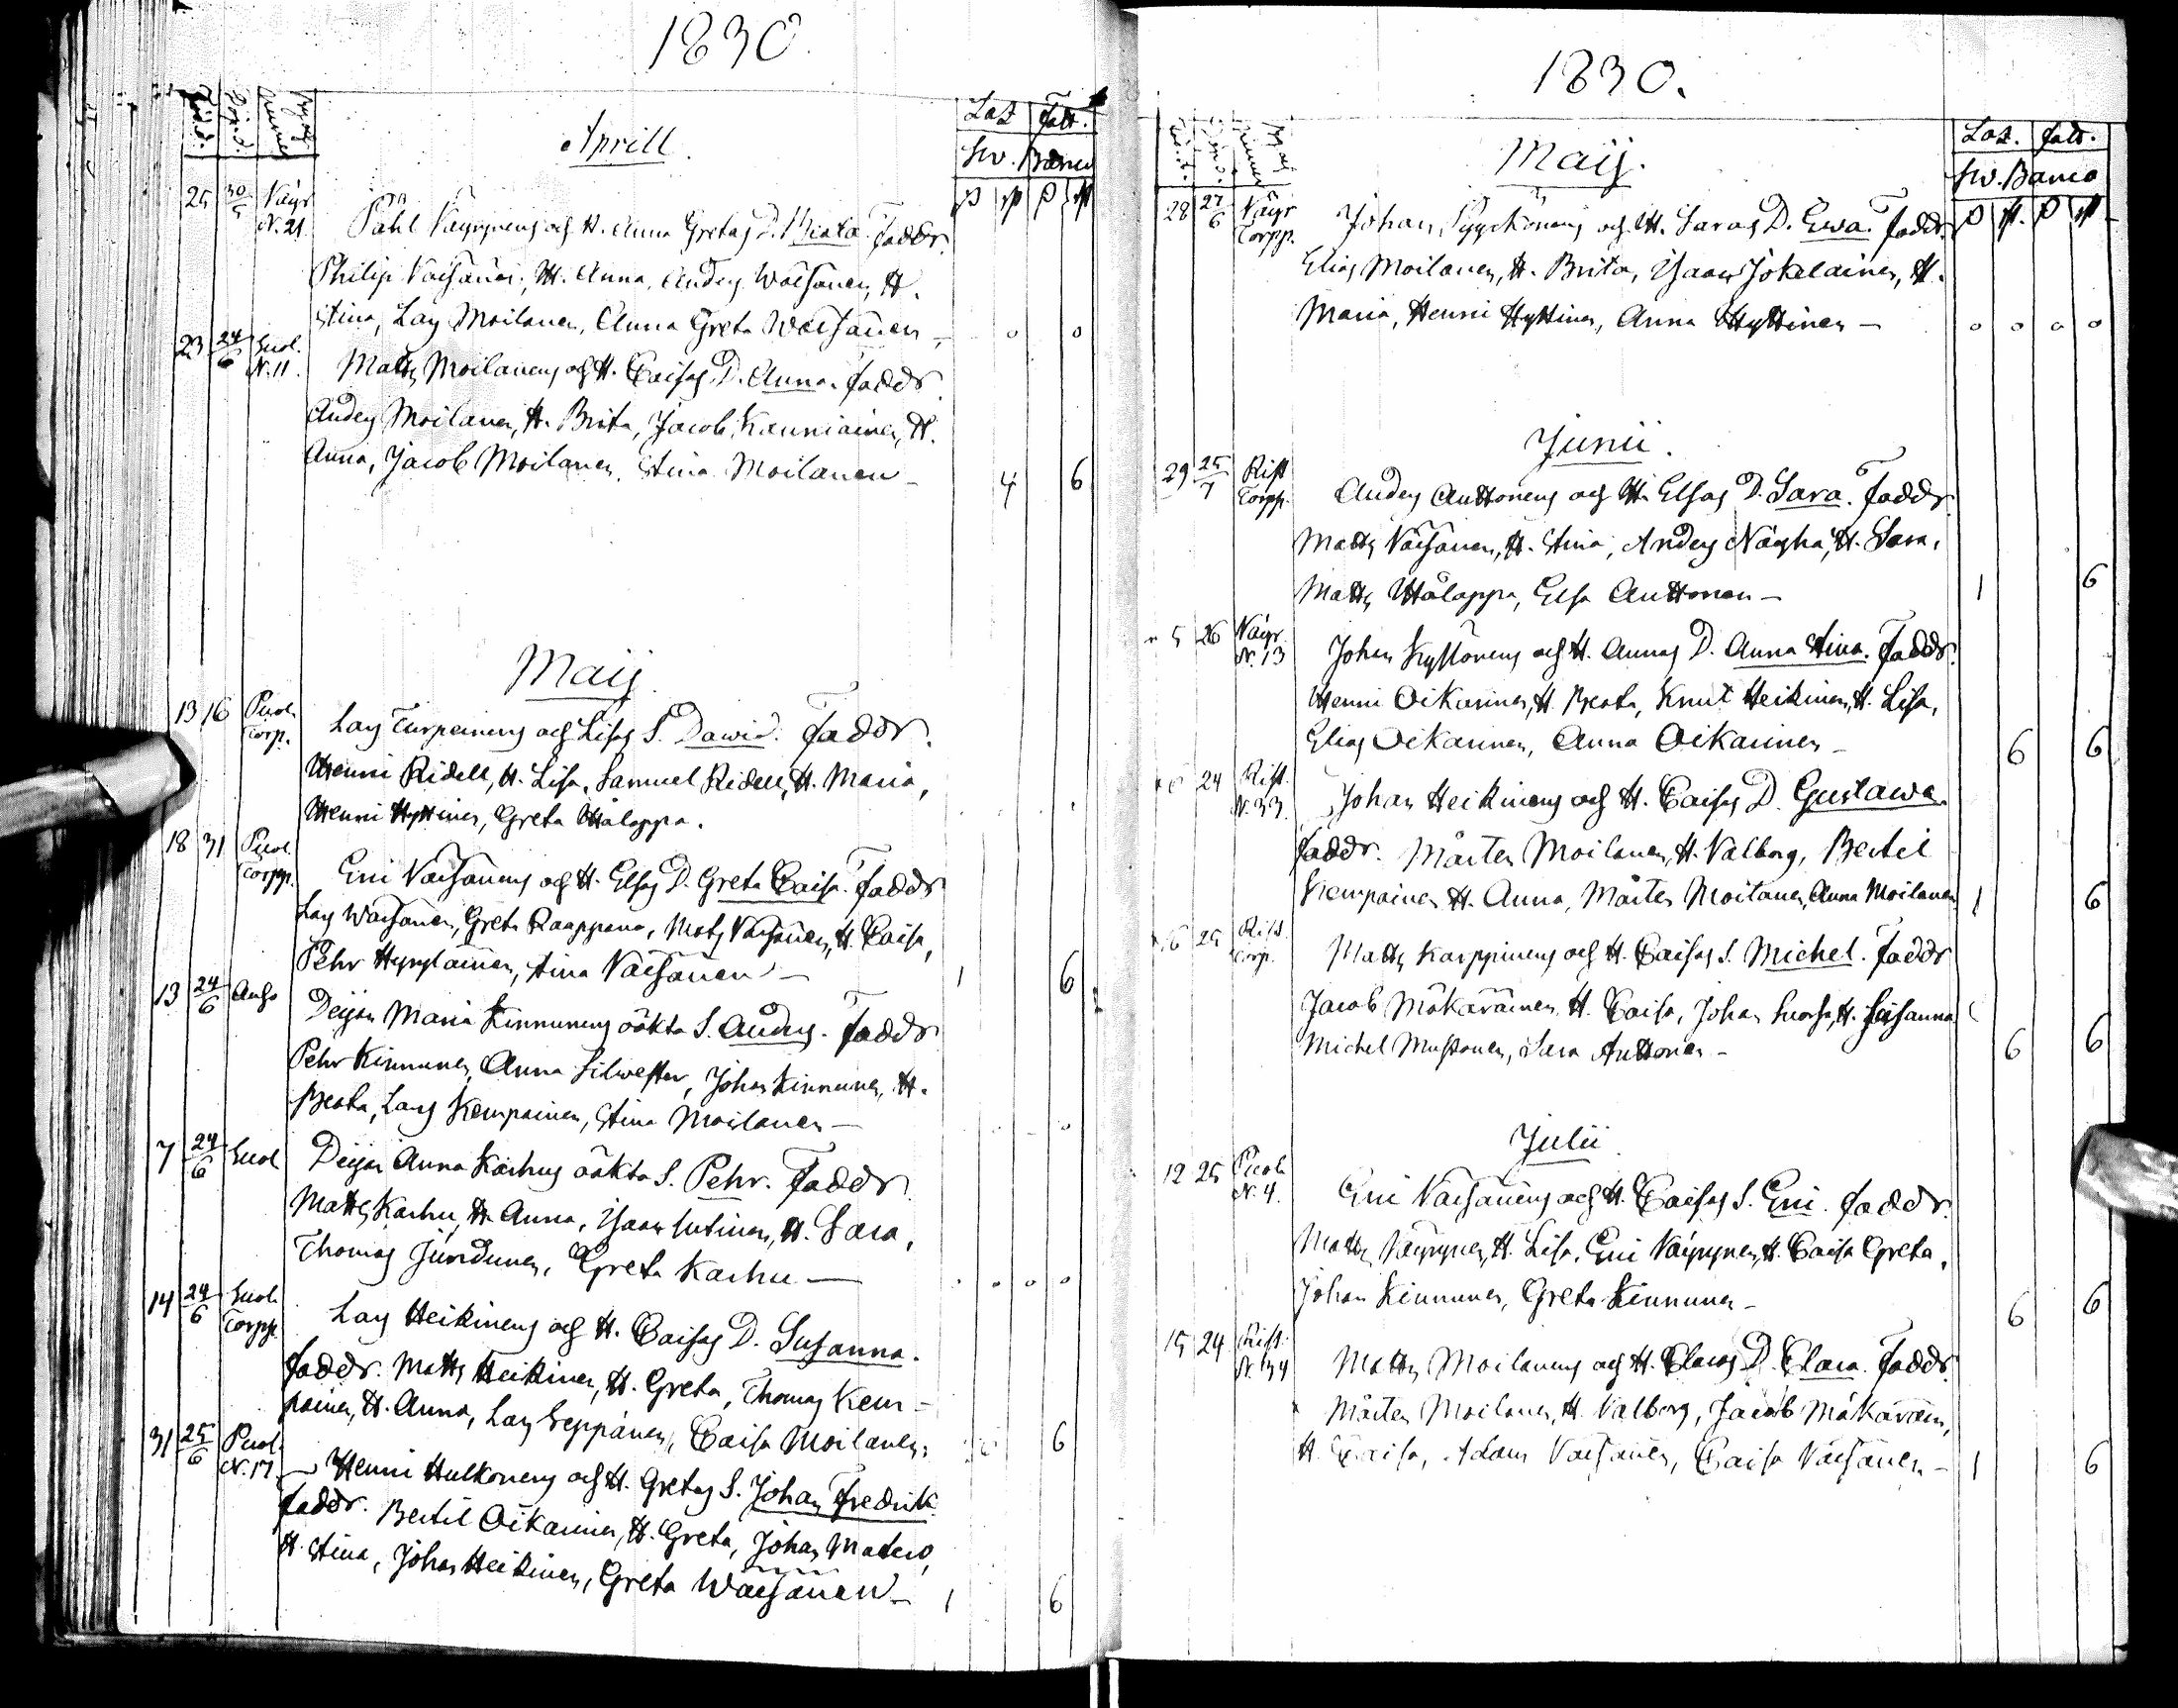 1830.
Aprill.
Laz. fatt.
Sv. Banco
25 30/5 Väyr N. 21
Påhl Väyrynens och H. Anna Gretas D. Beata. Faddr.
Philip Väisänen, H. Anna, Anders Wäisänen, H.
Stina, Lars Moilanen, Anna Greta Wäisänen –
23 24/6 Suol. N. 11.
Matts Moilanens och H. Caisas D. Anna. Faddr.
Anders Moilanen, H. Brita, Jacob Kauniainen, H.
Anna, Jacob Moilanen, Stina Moilanen – 4 6
Maij
13 16 Puol. Torp.
Lars Turpeinens och Lisas S. Dawid. Faddr.
Henric Ridell, H. Lisa, Samuel Ridell, H. Maria,
Henric Hyttinen, Greta Hålappa.
18 31 Puol. Torpp.
Eric Väisänens och H. Elsas D. Greta Caisa. Faddr
Lars Wäisänen, Greta Raappana, Mats Väisänen, H. Caisa,
Pehr Hyrylainen, Stina Väisänen – 1 6
13 24/6
Deijan Maria Kinnunens oäkta S. Anders. Faddr
Pehr Kinnunen, Anna Silwester, Johan Kinnunen, H.
Beata, Lars Kempainen, Stina Moilanen –
7 24/6 Suol
Deijan Anna Karhus oäkta S. Pehr. Faddr.
Matts Karhu, H. Anna, Isaac Lutinen, H. Sara,
Thomas Jundunen, Greta Karhu –
14 24/6 Suol. Torpp.
Lars Heikinens och H. Caisas D. Susanna.
Faddr. Matts Heikinen, H. Greta, Thomas Kem-
painen, H. Anna, Lars Seppänen, Caisa Moilanen. 6
31 25/6 Puol. N. 17.
Henric Hulkonens och H. Gretas S. Johan Fredrik.
Faddr. Bertil Oikarinen, H. Greta, Johan Matero,
H. Stina, Johan Heikinen, Greta Wäisänen – 1 6
1830.
Maij.
Laz. fatt.
Sv. Banco
28 27/6 Väyr Torpp.
Johan Pyyckönens och H. Saras D. Ewa. Faddr.
Elias Moilanen, H. Brita, Isaac Jokelainen, H.
Maria, Henric Hyttinen, Anna Hyttinen – 0 0 0 0
Junii.
29 25/7 Rist Torpp.
Anders Anttonens och H. Elsas D. Sara. Faddr.
Matts Väisänen, H. Stina, Anders Näyhä, H. Sara,
Matts Hålappa, Elsa Anttonen – 1 6
5 26 Väyr. N. 13
Johan Kyllönens och H. Annas D. Anna Stina. Faddr.
Henric Oikarinen, H. Beata, Knut Heikinen, H. Lisa,
Elias Oikarinen, Anna Oikarinen – 6 6
6 24 Rist. N. 33.
Johan Heikinens och H. Caisas D. Gustawa.
Faddr. Mårten Moilanen, H. Valborg, Bertil
Kempainen H. Anna, Mårten Moilanen, Anna Moilanen 1 6
16 25 Rist. Torp.
Matts Karppinens och H. Caisas S. Michel. Faddr
Jacob Mökäräinen H. Caisa, Johan Luorsa, H. Susanna
Michel Mustonen, Sara Anttonen – 6 6
Julii
12 25 Puol. N. 4.
Eric Väisänens och H. Caisas S. Eric. Faddr.
Matts Väyrynen, H. Lisa, Eric Väyrynen, H. Caisa Greta,
Johan Kinnunen, Greta Kinnunen – 6 6
15 24 Rist. N. 34
Matts Moilanens och H. Claras D. Clara. Faddr.
Mårten Moilanen, H. Valborg, Jacob Mökäräin,
H. Caisa, Adam Väisänen, Caisa Väisänen – 1 6